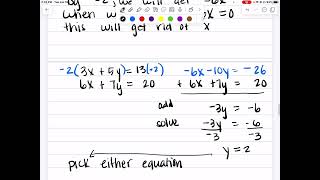 when w x = 0
this will get rid of x
-2(3x + 5y) = 13(-2) -6x - 10y = -26
6x + 7y = 20 + 6x + 7y = 20
add -3y = -6
solve -3y/-3 = -6/-3
pick either equation y = 2